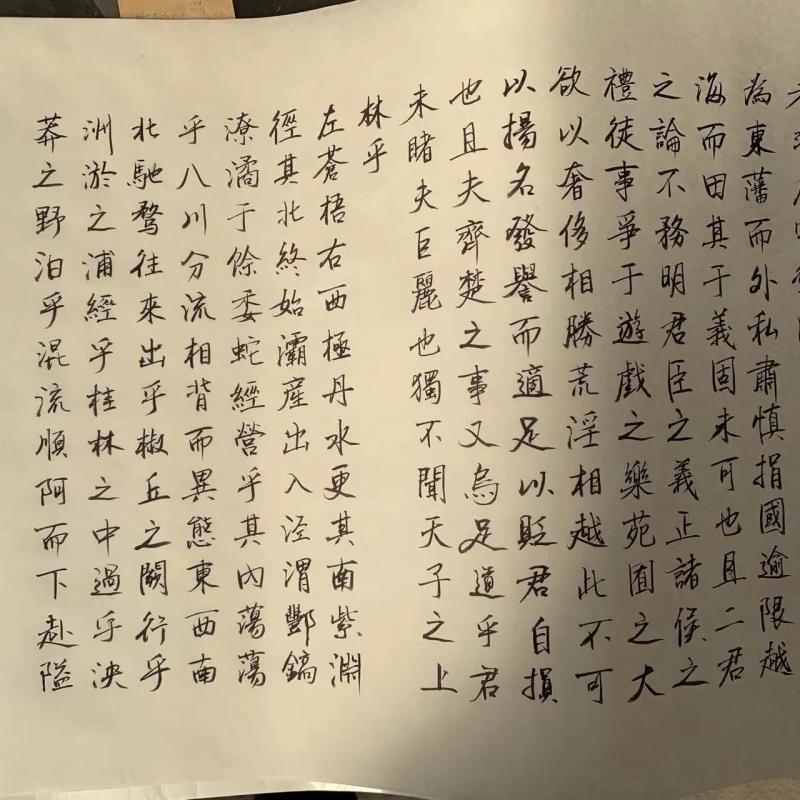 為東藩而外私肅慎捐國逾限越
海而田其于義固未可也且二君
之論不務明君臣之義正諸侯之
禮徒事爭于遊戲之樂苑囿之大
欲以奢侈相勝荒淫相越此不可
以揚名發譽而適足以貶君自損
也且夫齊楚之事又烏足道乎君
未睹夫巨麗也獨不聞天子之上
林乎
左蒼梧右西極丹水更其南紫淵
徑其北終始灞產出入涇渭酆鎬
潦潏于馀委蛇經營乎其內蕩蕩
乎八川分流相背而異態東西南
北馳騖往來出乎椒丘之闕行乎
洲淤之浦經乎桂林之中過乎泱
莽之野泊乎混流順阿而下赴隘